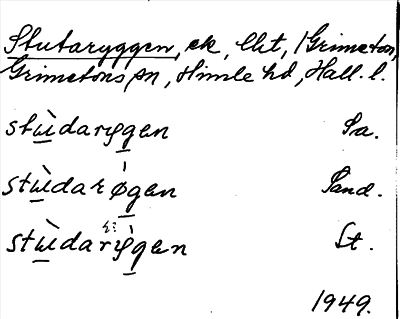 Stutaryggen, ek, Utt, Grimeton,
Grimetons sn, Himle hd, Hall. l.
stù̲daryg̲en Sa.
stù̲darǿ̲gen Sand.
stù̲daryg̲̀en St.
1949.